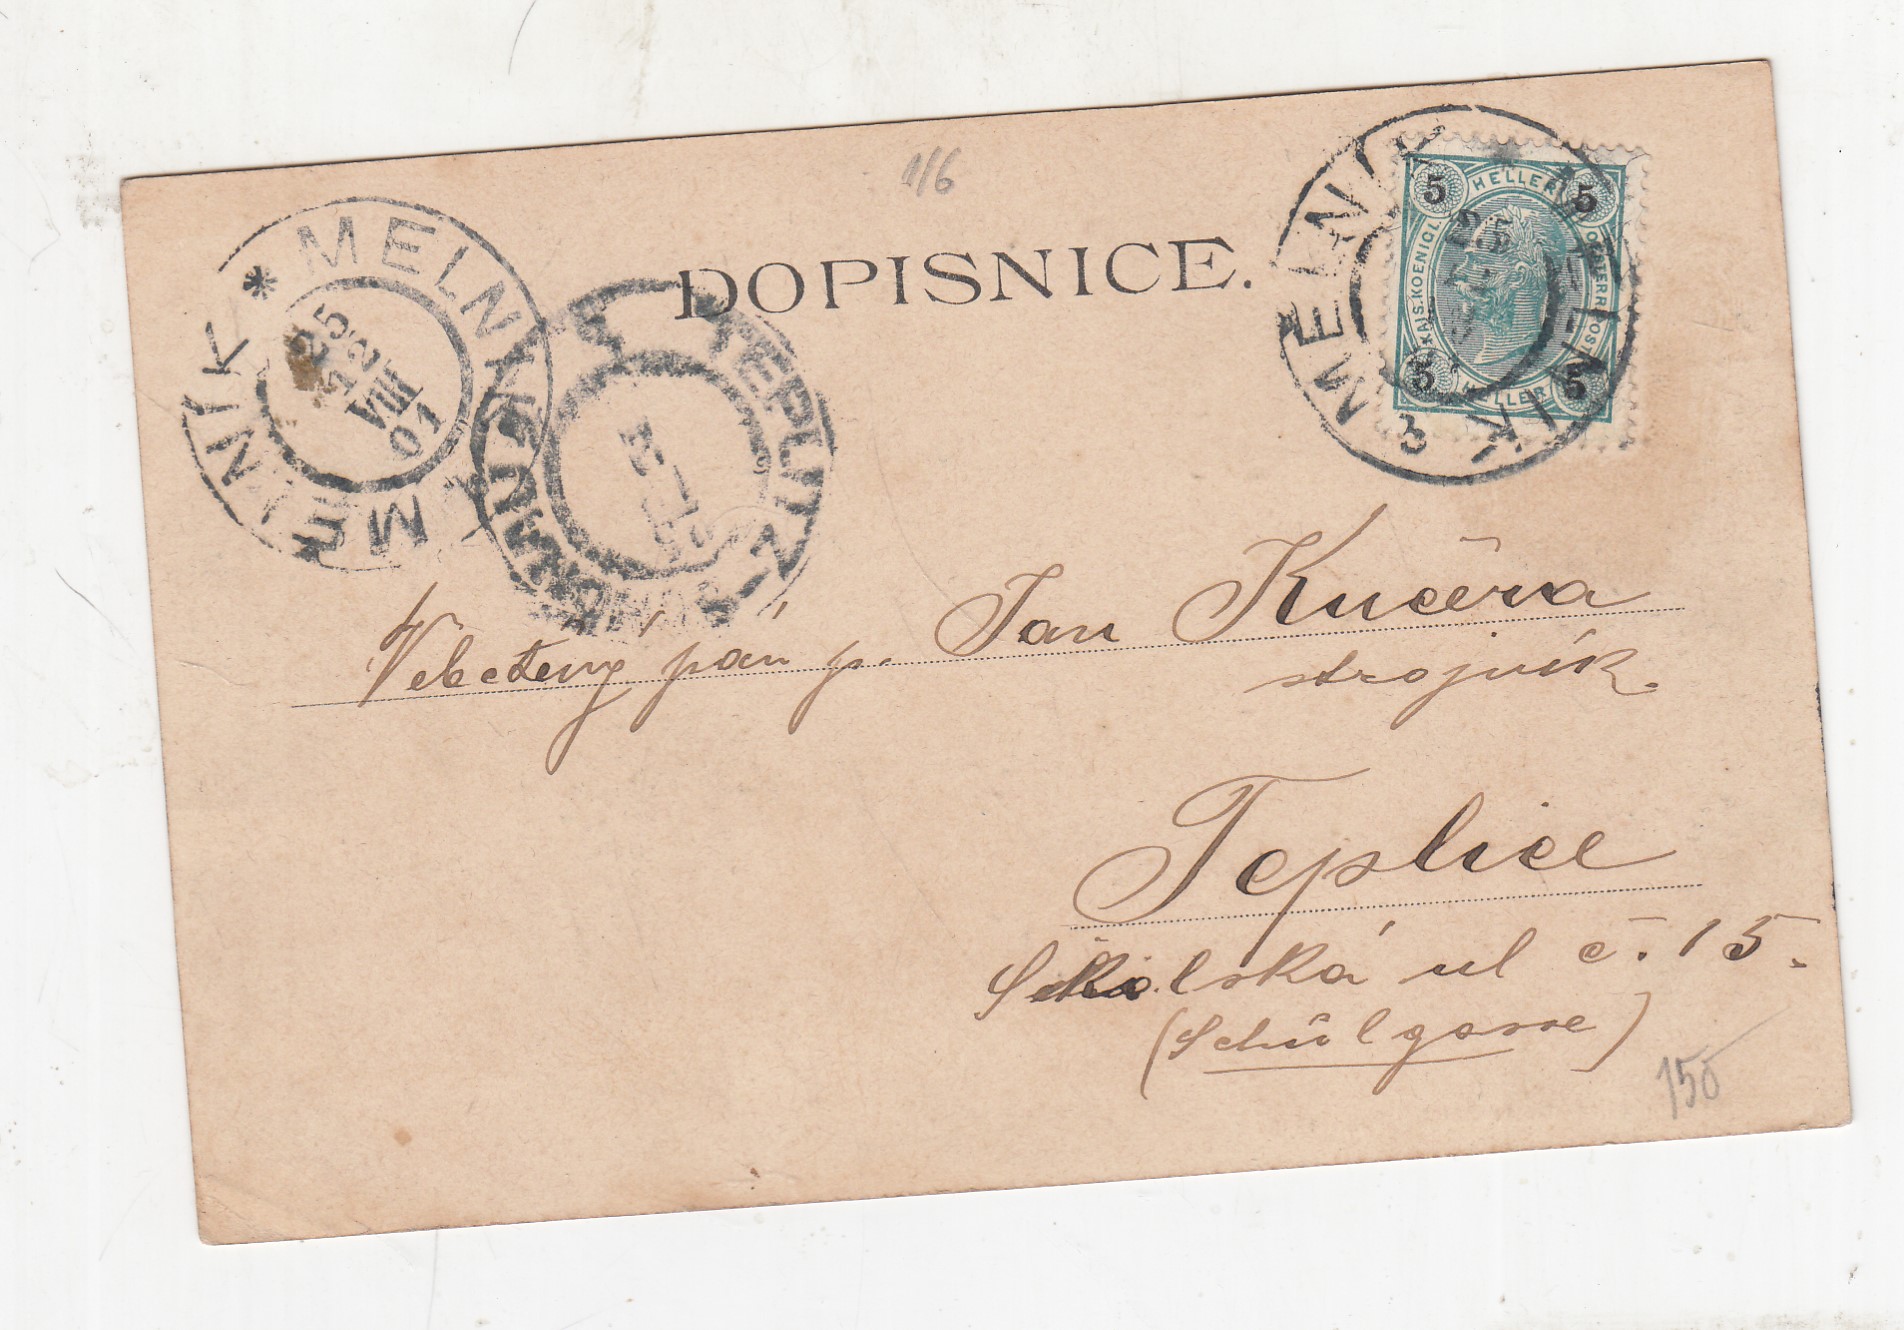 1/6
DOPISNICE.
MELNIK * MELNIK
25
12
VIII
01
TEPLITZ-
MELNIK MELNIK
25
3
5 HELLER 5
KAIS. KOENIGL. OESTERR. POST
5 HELLER 5
Velectěný pán p. Jan Kučera
strojník.
Teplice
Školská ul č. 15.
(Schulgasse)
150